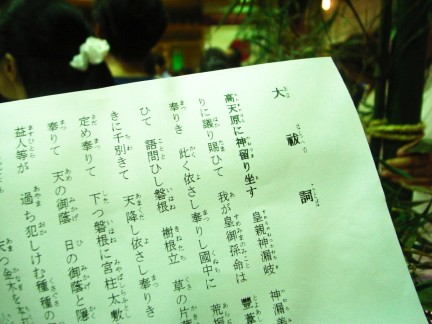 大祓詞
高天原に神留り坐す 皇親神漏岐 神漏
りに議り賜ひて 我が皇御孫命は 豊葦
奉りき 此く依さし奉りし國中に 荒
ひて 語問ひし磐根 樹根立 草の片
きに千別きて 天降し依さし奉りき
定め奉りて 下つ磐根に宮柱太敷
奉りて 天の御蔭 日の御蔭と隠
益人等が 過ち犯しけむ種種の
つ金木を本